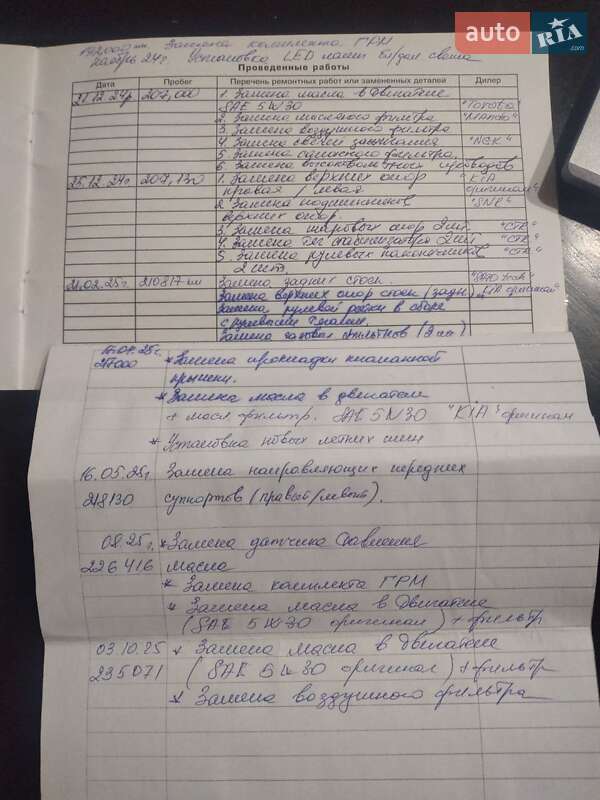 auto RIA .com
192000 км. Замена комплекта ГРМ
24г. Установка LED ламп бл/дал света
Проведенные работы
Дата Пробег Перечень ремонтных работ или замененных деталей Дилер
21.12.24г 207,000 1. Замена масла в двигателе
SAE 5W30
2. Замена масляного фильтра "Mando"
3. Замена воздушного фильтра
4. Замена свечей зажигания "NGK"
5. Замена салонного фильтра.
6. Замена высоковольтных проводов
25.12.24г 207,130 1. Замена верхних опор "KIA
правая / левая оригинал"
2. Замена подшипников "SNR"
верхних опор.
3. Замена шаровых опор 2шт. "CTR"
4. Замена тяг стабилизатора 2шт "CTR"
5. Замена рулевых наконечников "CTR"
2 шт.
21.02.25г. 210817 км Замена задних стоек.
Замена верхних опор стоек (задн) KIA оригинал
Замена рулевой рейки в сборе
с рулевыми тягами.
Замена газовых (2 шт)
.25г. * Замена прокладки клапанной
217000 крышки.
* Замена масла в двигателе
+ масл. фильтр. SAE 5W30 "KIA" оригинал
* Установка новых летних шин
16.05.25г Замена направляющих передних
218130 суппортов (правый/левый).
08.25г. * Замена датчика давления
226416 масла
* Замена комплекта ГРМ
* Замена масла в двигателе
(SAE 5W30 оригинал) + фильтр
03.10.25 * Замена масла в двигателе
235071 (SAE 5W30 оригинал) + фильтр
* Замена воздушного фильтра